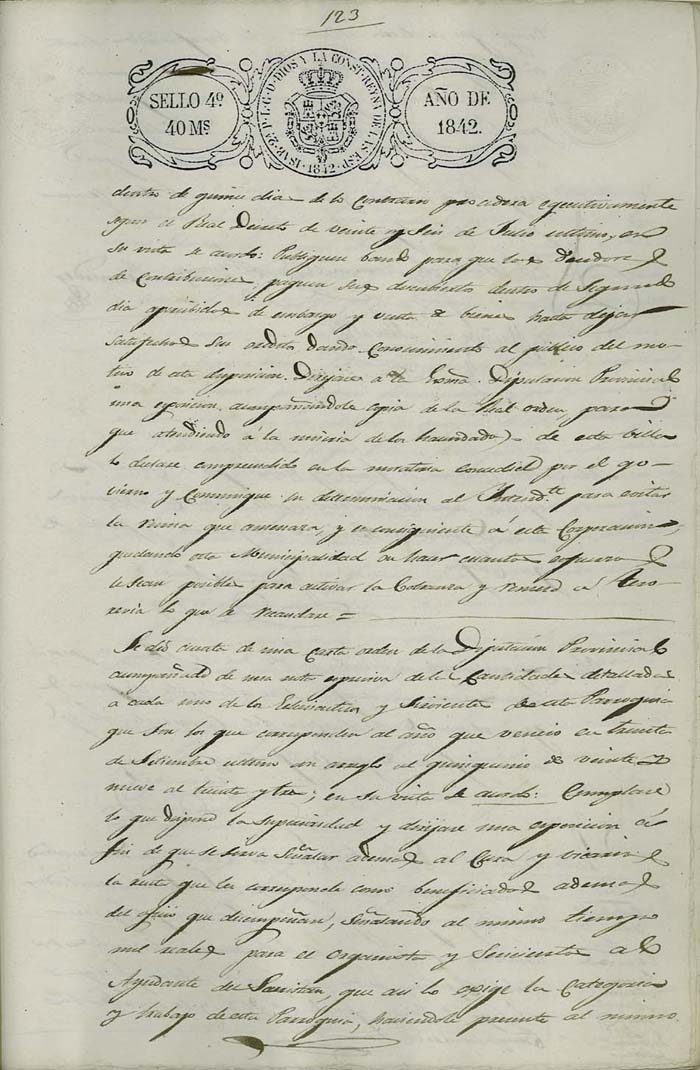 123
SELLO 4º
40 Ms
ISAB. 2ª P. L. G. D. DIOS Y LA CONST. REYNA DE LAS ESP.
1842
AÑO DE
1842.
dentro de quince dias de lo Contrario procedera egecutivamente
segun el Real Decreto de veinte y Seis de Julio ultimo, en
su vista se acordó: Publiquese bando para que los deudores
de Contribuciones paguen sus descubiertos dentro de Segundo
dia apercibidos de embargo y venta de bienes hasta dejar
satisfechos sus creditos dando Conocimiento al público del mo-
tivo de esta disposicion. Dirijase a la Exma. Diputacion Provincial
una esposicion acompañandole copia de la Real orden, para
que atendiendo á la miseria de los hacendados de esta villa
lo declare comprendido en la moratoria concedida por el go-
vierno y Comunique su determinacion al Intendte. para evitar
la ruina que amenaza, y es consiguiente á esta Corporacion,
quedando esta Municipalidad en hacer cuantos esfuerzos
le sean posibles para activar la Cobranza y remesa a Teso-
reria lo que se recaudare =
Se dió cuenta de una Carta orden de la Diputacion Provincial
acompañada de una nota espresiva de las Cantidades detalladas
a cada uno de los Eclesiasticos y Sirvientes de esta Parroquia
que son las que corresponden al año que vencio en treinta
de Setiembre ultimo con arreglo al quinquenio de veinte y
nueve al treinta y tres; en su vista se acordó: Cumplase
lo que dispone la Superioridad y dirijase una esposicion á
fin de que se sirva Señalar ademas al Cura y vicarios
la renta que les corresponde como beneficiados ademas
del oficio que desempeñan, Señalando al mismo tiempo
mil reales para el Organista y Seiscientos al
Ayudante del Sacristan, que asi lo exige la Categoria
y trabajo de esta Parroquia, haciendole presente al mismo